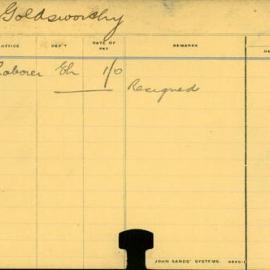 Goldsworthy
OFFICE DEP'T DATE OF PAY REMARKS
Laborer Eh 1/0
Resigned
JOHN SANDS' SYSTEMS.